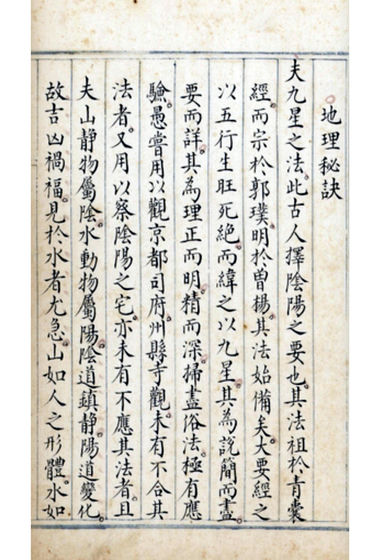 地理秘訣
夫九星之法此古人擇陰陽之要也其法祖於青囊
經而宗於郭璞明於曾楊其法始備矣大要經之
以五行生旺死絕而緯之以九星其為說簡而盡
要而詳其為理正而明精而深掃盡俗法極有應
驗愚嘗用以觀京都司府州縣寺觀未有不合其
法者又用以察陰陽之宅亦未有不應其法者且
夫山靜物屬陰水動物屬陽陰道鎮靜陽道變化
故吉凶禍福見於水者尤急山如人之形體水如